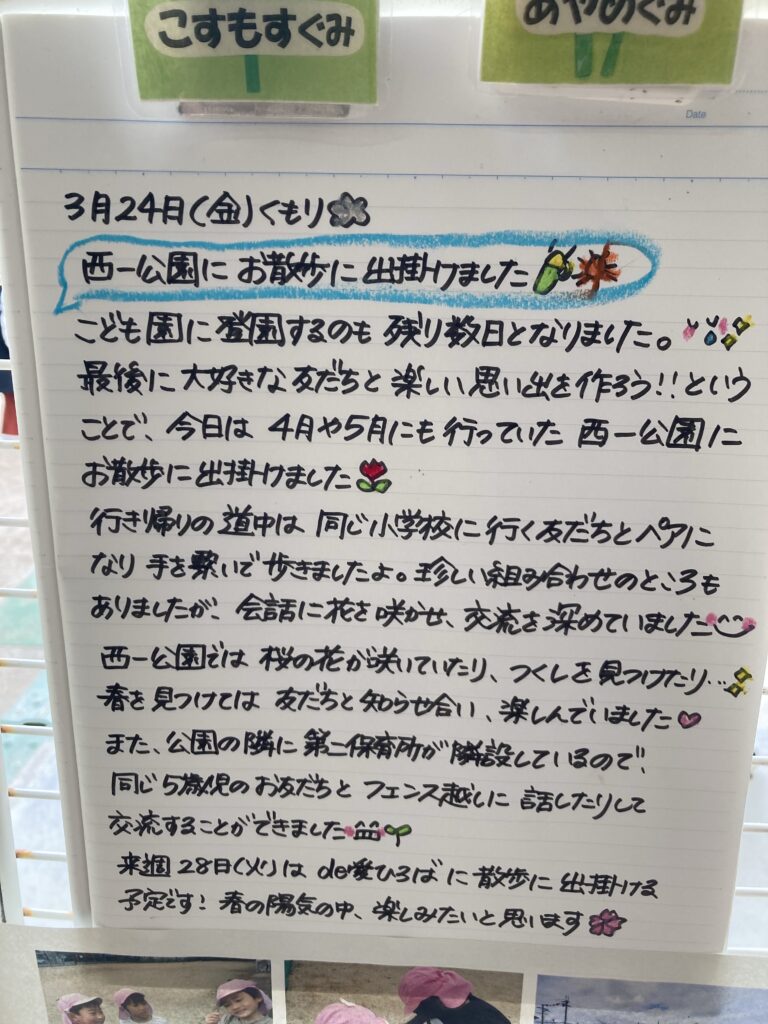 こすもすぐみ
あやめぐみ
Date
3月24日(金)くもり
西一公園に お散歩に 出掛けました
こども園に登園するのも 残り数日となりました。
最後に 大好きな友だちと 楽しい思い出を作ろう!!という
ことで、今日は 4月や5月にも行っていた 西一公園に
お散歩に 出掛けました
行き帰りの道中は 同じ小学校に行く友だちとペアに
なり 手を繋いで歩きましたよ。珍しい組み合わせのところも
ありましたが、会話に花を咲かせ、交流を深めていました
西一公園では 桜の花が咲いていたり、つくしを見つけたり…
春を見つけては 友だちと知らせ合い、楽しんでいました
また、公園の隣に 第二保育所が隣設しているので、
同じ5歳児のお友だちと フェンス越しに 話したりして
交流することができました
来週 28日(火)は de愛ひろばに 散歩に 出掛ける
予定です! 春の陽気の中、楽しみたいと思います